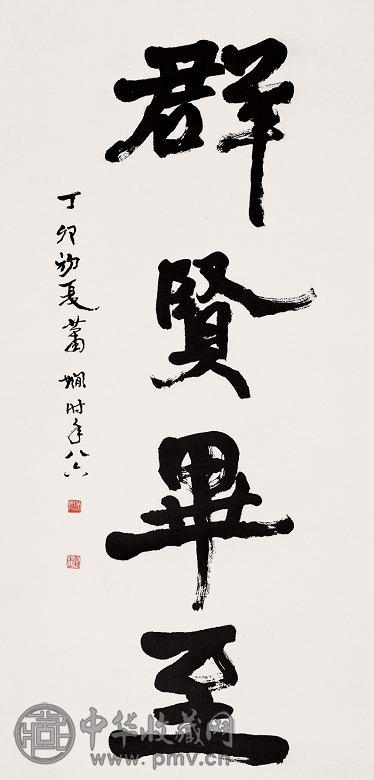 群賢畢至
丁卯初夏蕭嫻時年八六
中华收藏网
www.pmv.cn